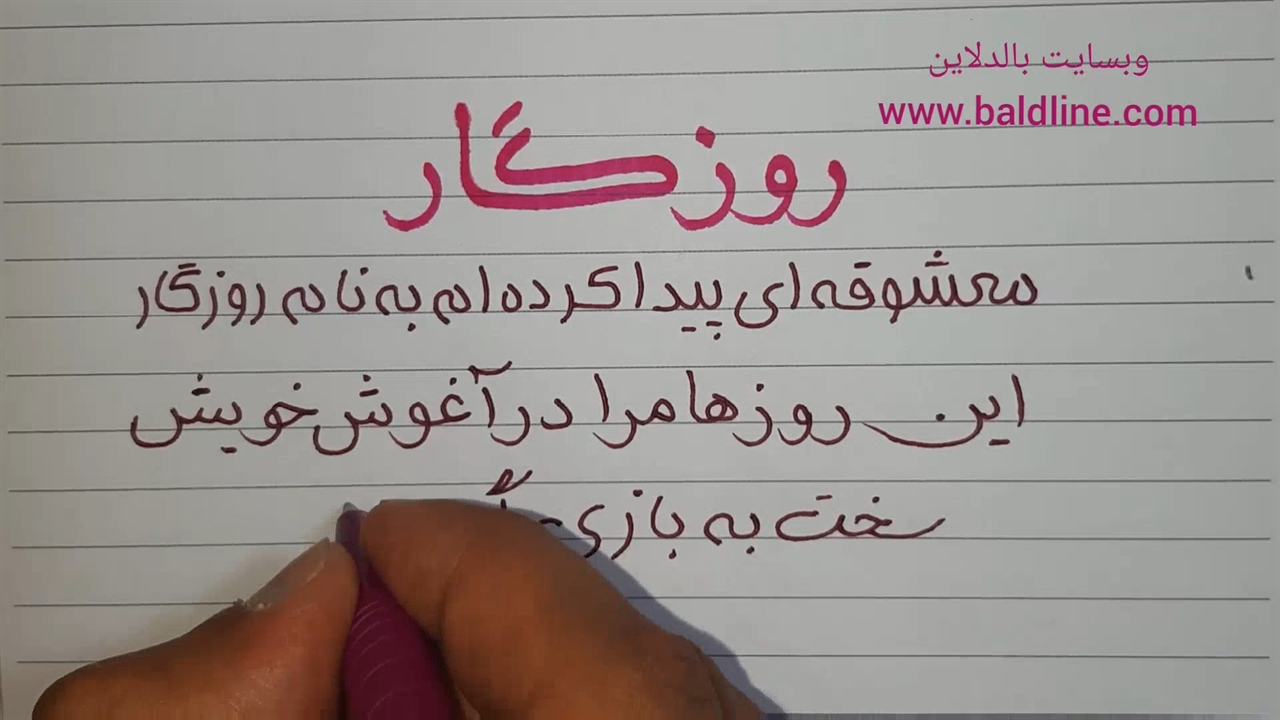 وبسایت بالدلاین
www.baldline.com
روزگار
معشوقه ای پیدا کرده ام به نام روزگار
این روزها مرا در آغوش خویش
سخت به بازی